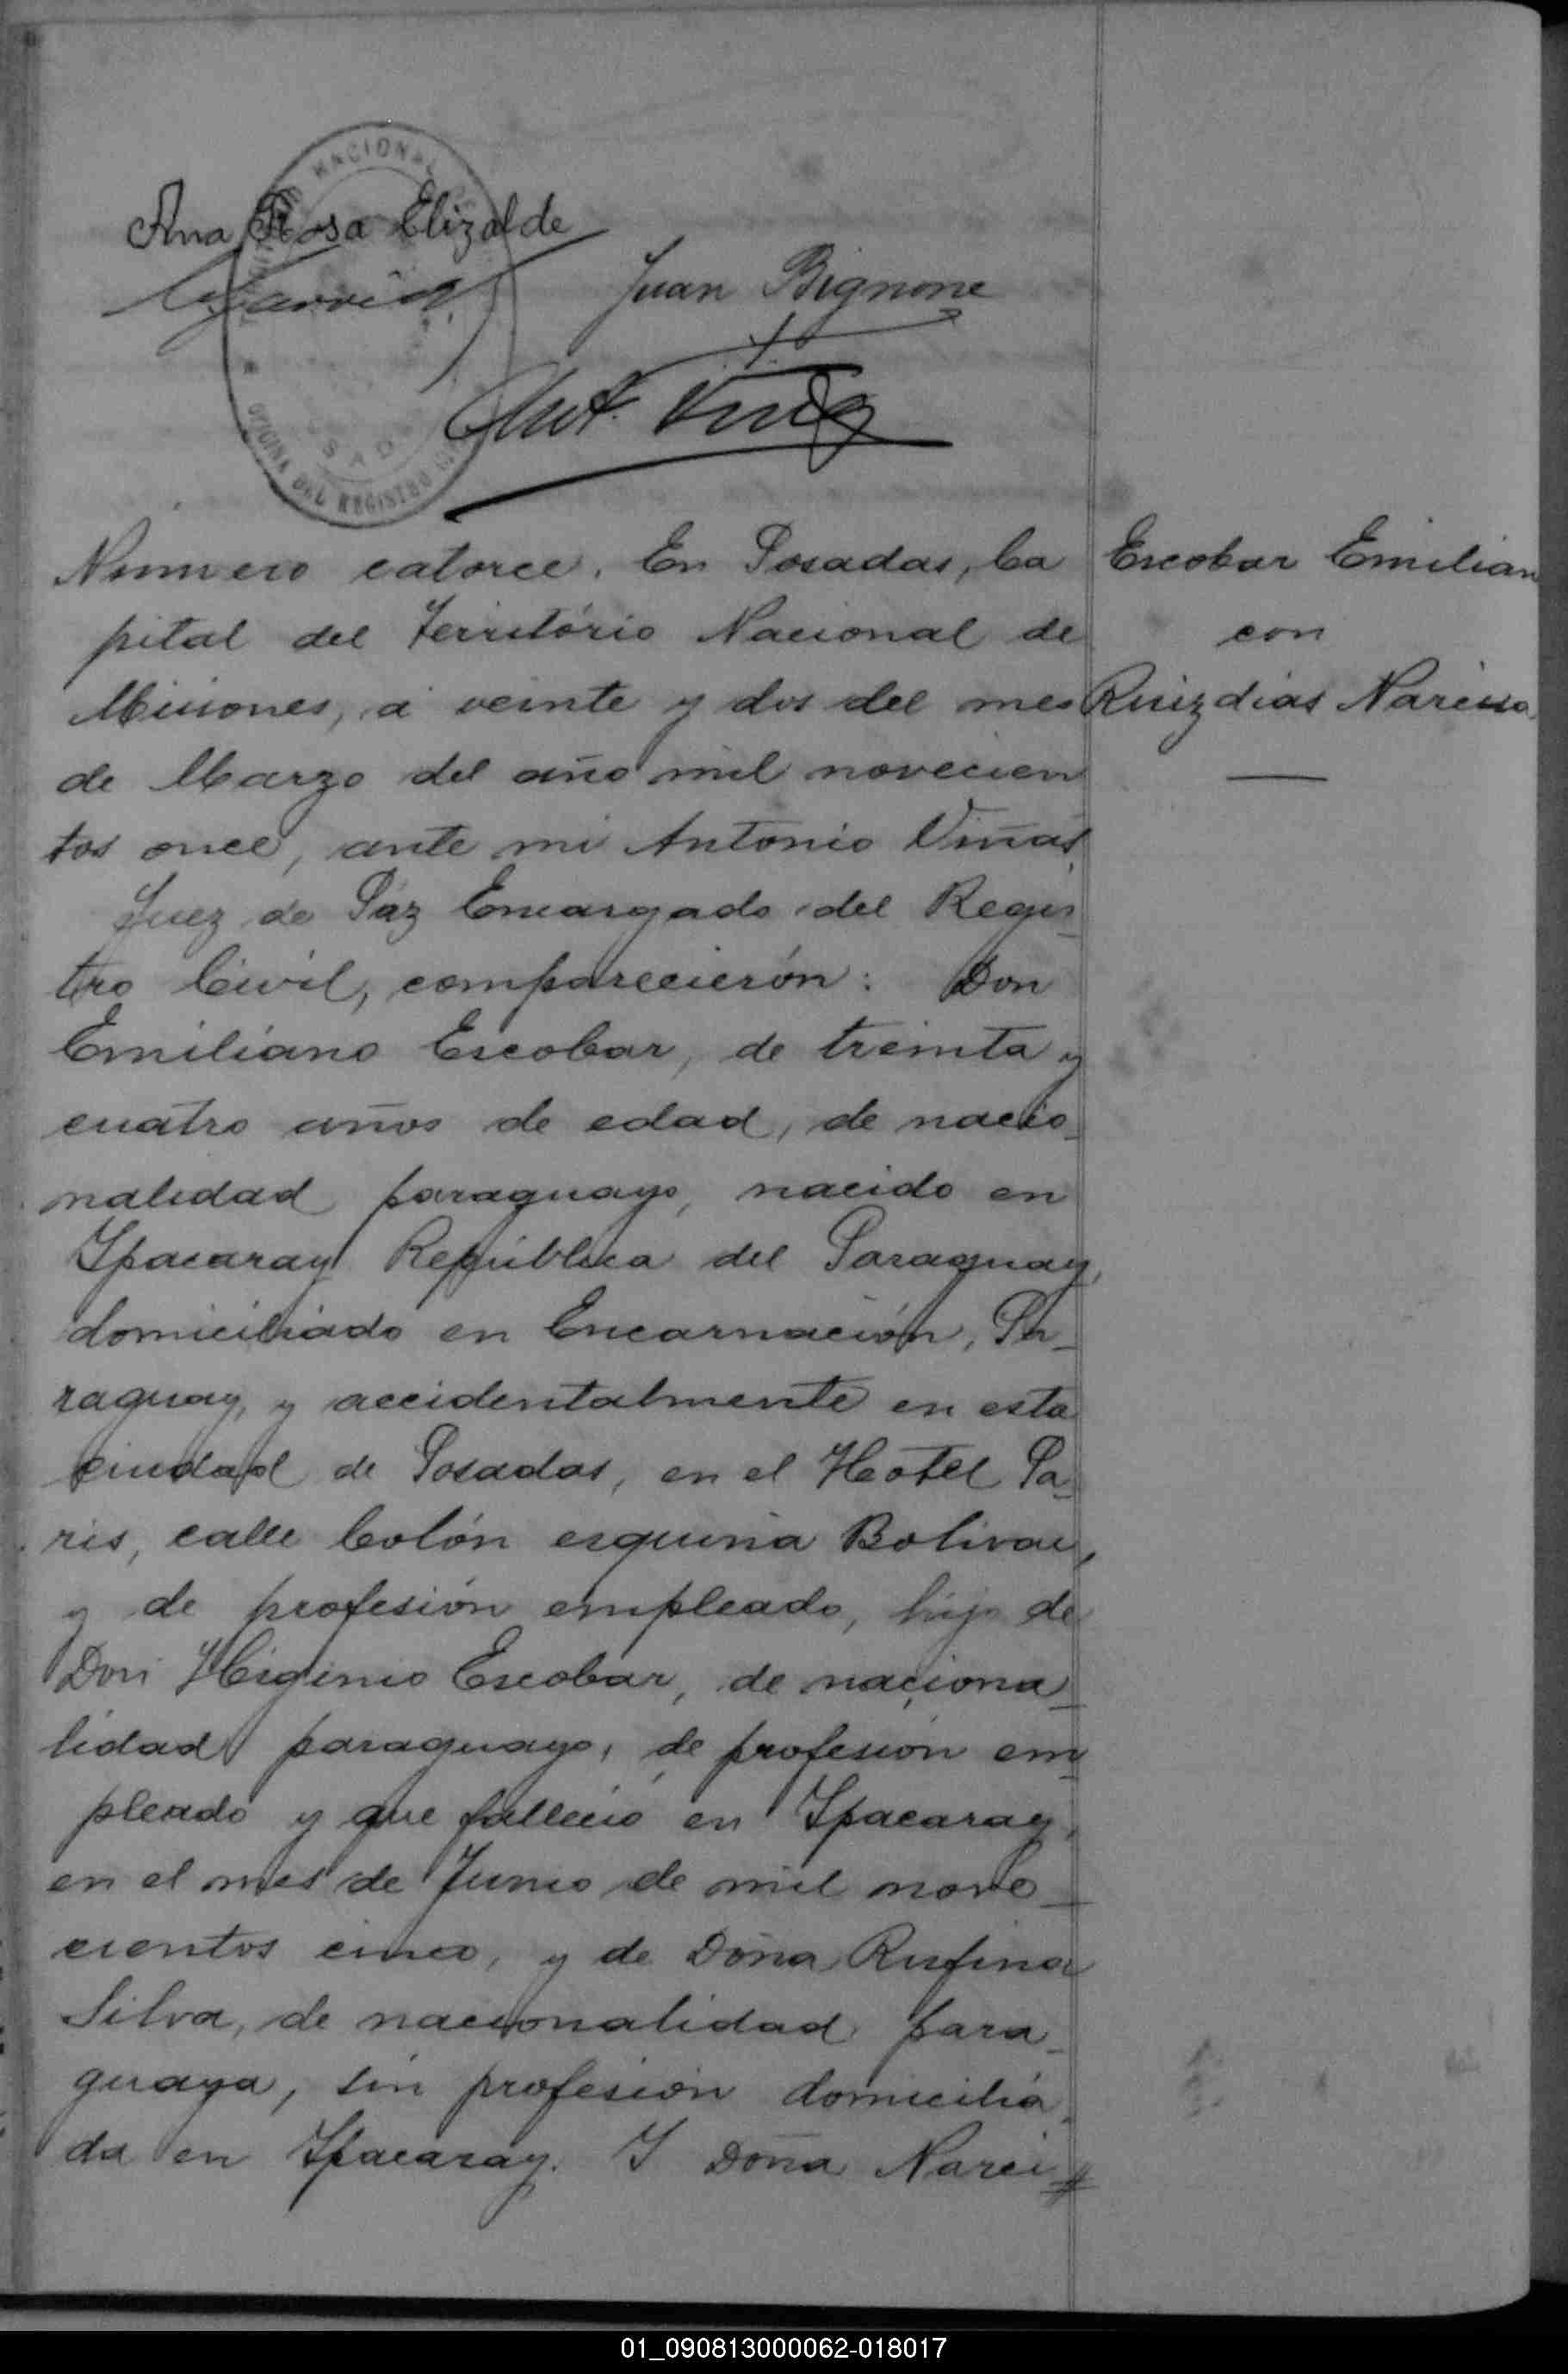 NACIONAL
Ana Rosa Elizalde
Juan Bignone
Ant. Viñas
OFICINA DEL REGISTRO
Número catorce. En Posadas, Ca
pital del Territorio Nacional de
Misiones, á veinte y dos del mes
de Marzo del año mil novecien
tos once, ante mi Antonio Viñas,
Juez de Paz Encargado del Regis-
tro Civil, comparecierón: Don
Emiliano Escobar, de treinta y
cuatro años de edad, de nacio-
nalidad paraguayo, nacido en
Ypacaray República del Paraguay,
domiciliado en Encarnación, Pa-
raguay, y accidentalmente en esta
ciudad de Posadas, en el Hotel Pa-
ris, calle Colón esquina Bolivar,
y de profesión empleado, hijo de
Don Higinio Escobar, de naciona-
lidad paraguayo, de profesión em-
pleado y que falleció en Ypacaray,
en el mes de Junio de mil nove-
cientos cinco, y de Doña Rufina
Silva, de nacionalidad para-
guaya, sin profesión domicilia-
da en Ypacaray. Y Doña Narci-
Escobar Emilian
con
Ruizdias Narcisa
01_090813000062-018017